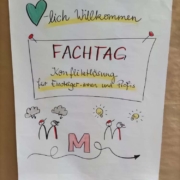 -lich Willkommen
FACHTAG
Konfliktklärung
für Einsteiger·innen und Profis
M